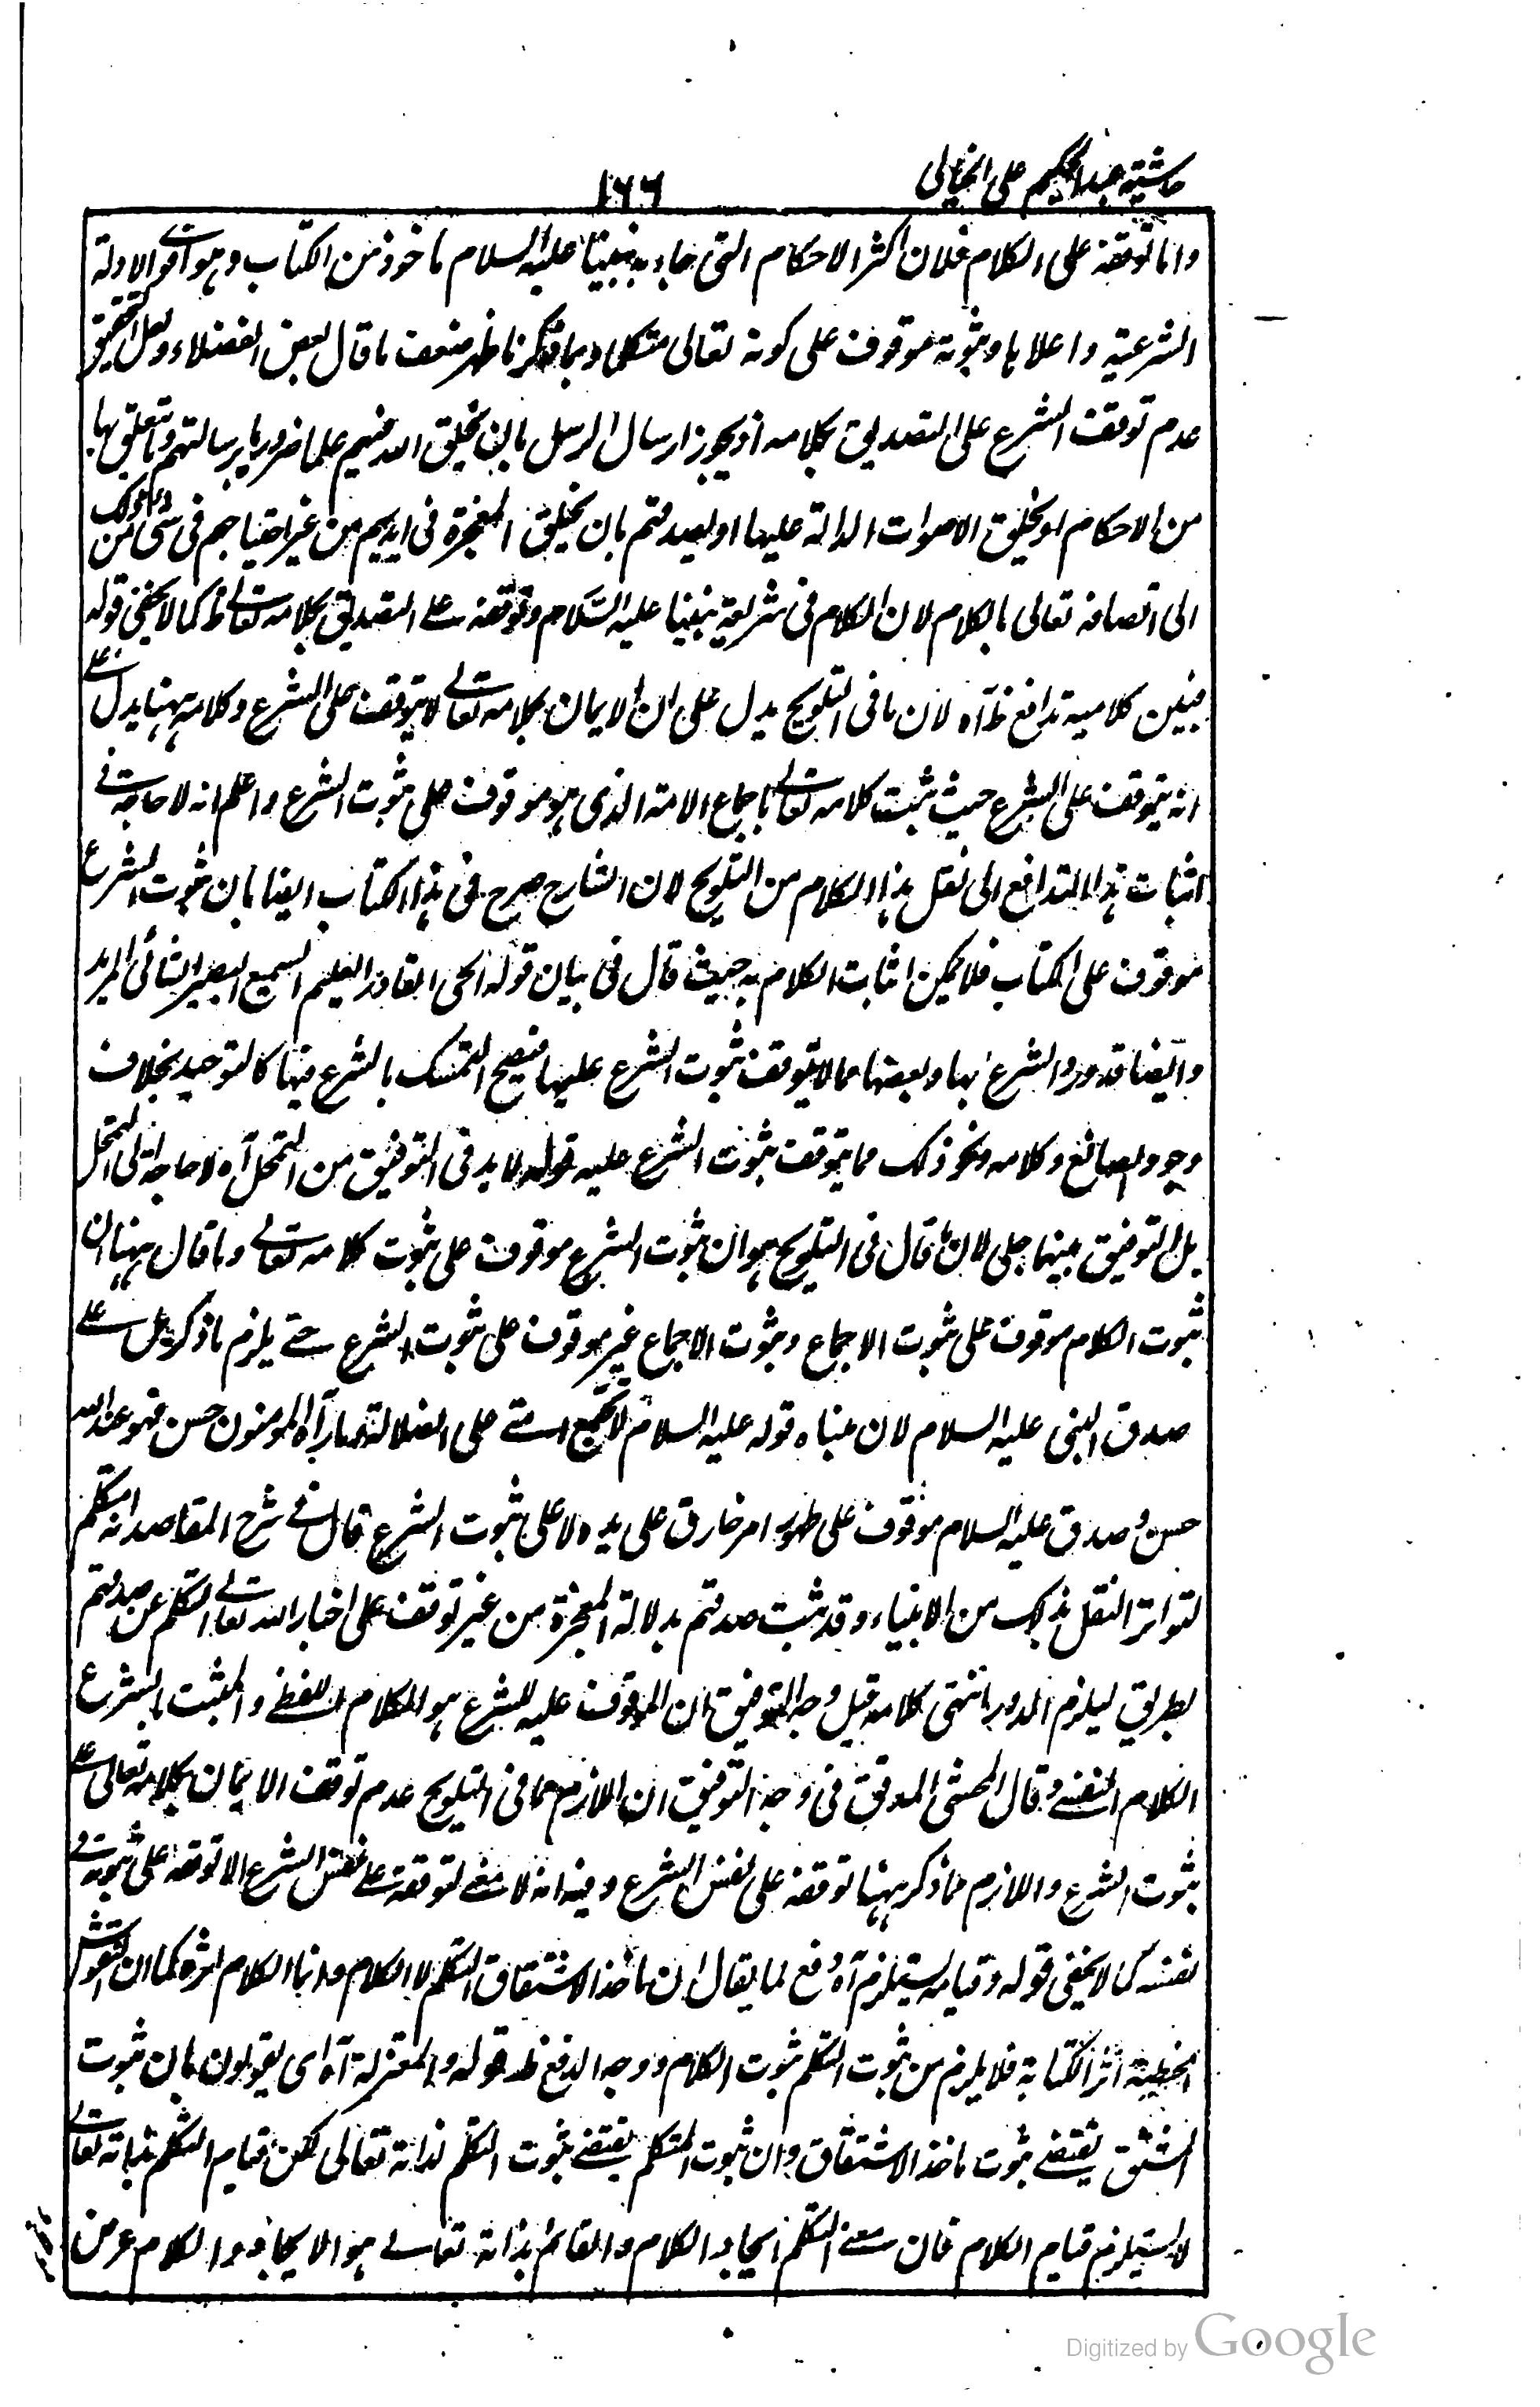 حاشية عبدالحكيم على الخيالى
١٦٦
واما توقفه على الكلام فلان اكثر الاحكام التى جاء به نبينا عليه السلام ماخوذ من الكتاب وهو اقوى الادلة
الشرعية واعلاها وثبوته موقوف على كونه تعالى متكلما وبما ذكرنا ظهر ضعف ما قال بعض الفضلاء ولعل التحقيق
عدم توقف الشرع على التصديق بكلامه اذ يجوز ارسال الرسل بان يخلق الله فيهم علما ضروريا برسالتهم وما يتعلق بها
من الاحكام او يخلق الاصوات الدالة عليها او يصدقهم بان يخلق المعجزة فى ايديهم من غير احتياجهم فى شئ من ذلك
الى اتصافه تعالى بالكلام لان الكلام فى شريعة نبينا عليه السلام وتوقفه على التصديق بكلامه تعالى ظ كما لا يخفى قوله
فبين كلاميه تدافع ظ آه لان ما فى التلويح يدل على ان الايمان بكلامه تعالى لا يتوقف على الشرع وكلامه ههنا يدل على
انه يتوقف على الشرع حيث ثبت كلامه تعالى باجماع الامة الذى هو موقوف على ثبوت الشرع واعلم انه لا حاجة فى
اثبات هذا التدافع الى نقل هذا الكلام من التلويح لان الشارح صرح فى هذا الكتاب ايضا بان ثبوت الشرع
موقوف على الكتاب فلا يمكن اثبات الكلام به حيث قال فى بيان قوله الحى القادر العليم السميع البصير الشائى المريد
وايضا قد ورد الشرع بها وبعضها مما لا يتوقف ثبوت الشرع عليها فيصح التمسك بالشرع فيها كالتوحيد بخلاف
وجود الصانع وكلامه ونحو ذلك مما يتوقف ثبوت الشرع عليه قوله لا بد فى التوفيق من التمحل آه لا حاجة الى التمحل
بل التوفيق بينهما جلى لان ما قال فى التلويح هو ان ثبوت الشرع موقوف على ثبوت كلامه تعالى وما قال ههنا ان
ثبوت الكلام موقوف على ثبوت الاجماع وثبوت الاجماع غير موقوف على ثبوت الشرع حتى يلزم ما ذكر بل على
صدق النبى عليه السلام لان مبناه قوله عليه السلام لا تجتمع امتى على الضلالة وما رآه المومنون حسن فهو عند الله
حسن وصدق عليه السلام موقوف على ظهور امر خارق على يده لا على ثبوت الشرع قال فى شرح المقاصد انه متكلم
لتواتر النقل بذلك من الانبياء وقد ثبت صدقهم بدلالة المعجزة من غير توقف على اخبار الله تعالى التكلم عن صدقهم
بطريق ليلزم الدور انتهى كلامه قيل وجه التوفيق ان الموقوف عليه للشرع هو الكلام اللفظى والمثبت بالشرع
الكلام النفسى وقال المحشى المدقق فى وجه التوفيق ان اللازم مما فى التلويح عدم توقف الايمان بكلامه تعالى على
ثبوت الشرع واللازم مما ذكر ههنا توقفه على نفس الشرع وفيه انه لا معنى لتوقفه على نفس الشرع الا توقفه على ثبوته فى
نفسه كما لا يخفى قوله وقيامه يستلزم آه دفع لما يقال ان ماخذ الاشتقاق التكلم لا الكلام وانما الكلام اثره كما ان النقوش
الخطية اثر الكتابة فلا يلزم من ثبوت التكلم ثبوت الكلام ووجه الدفع ظ قوله والمعتزلة آه اى يقولون بان ثبوت
المشتق يقتضى ثبوت ماخذ الاشتقاق وان ثبوت المتكلم يقتضى ثبوت التكلم لذاته تعالى لكن قيام التكلم بذاته تعالى
لا يستلزم قيام الكلام فان معنى التكلم ايجاد الكلام والقائم بذاته تعالى هو الايجاد والكلام عرض
Digitized by Google